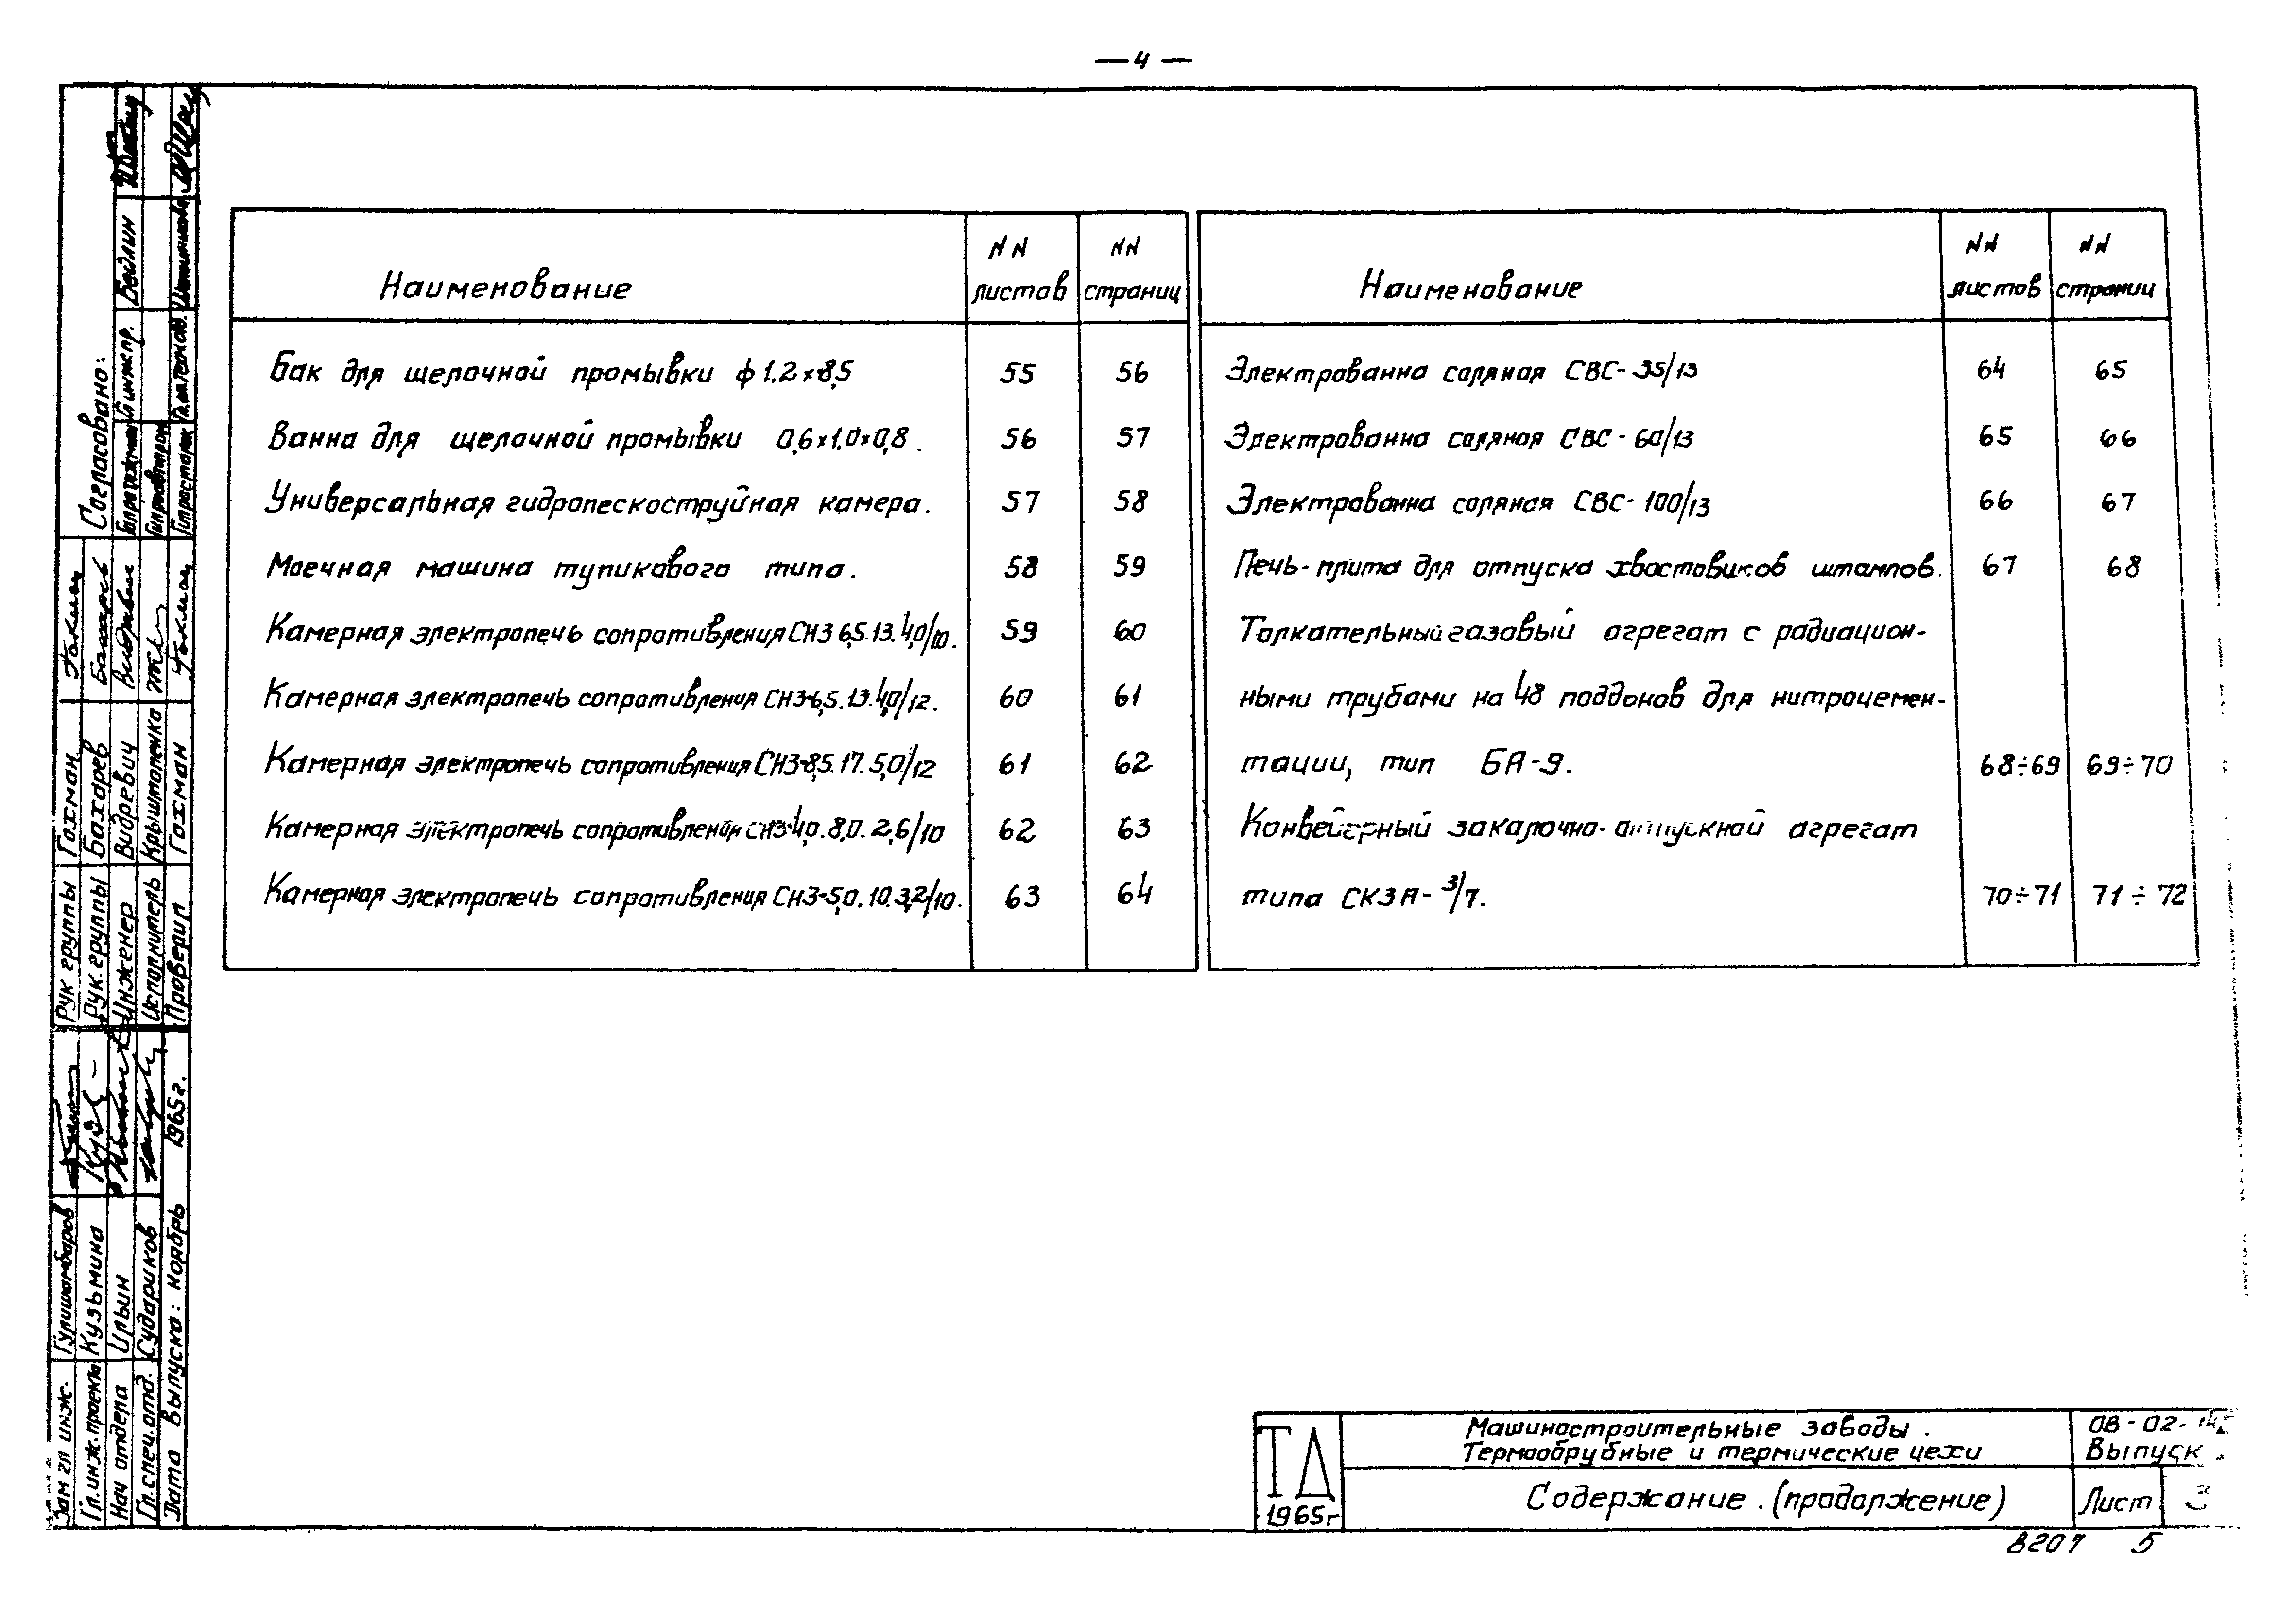 — 4 —
Наименование
NN листов
NN страниц
Бак для щелочной промывки ф 1.2×8,5 55 56
Ванна для щелочной промывки 0,6×1.0×0,8. 56 57
Универсальная гидропескоструйная камера. 57 58
Моечная машина тупикового типа. 58 59
Камерная электропечь сопротивления СНЗ 6,5.13.4,0/10. 59 60
Камерная электропечь сопротивления СНЗ-6,5.13.4,0/12. 60 61
Камерная электропечь сопротивления СНЗ-8,5.17.5,0/12 61 62
Камерная электропечь сопротивления СНЗ-4,0.8,0.2,6/10 62 63
Камерная электропечь сопротивления СНЗ-5,0.10.3,2/10. 63 64
Наименование
NN листов
NN страниц
Электрованна соляная СВС-35/13 64 65
Электрованна соляная СВС-60/13 65 66
Электрованна соляная СВС-100/13 66 67
Печь-плита для отпуска хвостовиков штампов. 67 68
Толкательный газовый агрегат с радиацион-
ными трубами на 48 поддонов для нитроцемен-
тации, тип БА-9. 68÷69 69÷70
Конвейерный закалочно-отпускной агрегат
типа СКЗА-3/7. 70÷71 71÷72
Согласовано:
Гл инж пр. Бейлин
Рук группы Гохман
Рук. группы Бахарев
Инженер Видревич
Исполнитель Крыштопенко
Проверил Гохман
Зам гл инж. Гулишамбаров
Гл. инж. проекта Кузьмина
Нач отдела Ильин
Гл. спец. отд. Судариков
Дата выпуска: ноябрь 1965 г.
ТД
1965 г
Машиностроительные заводы.
Термообрубные и термические цехи
08-02-
Выпуск
Содержание. (продолжение)
Лист 3
8207 5